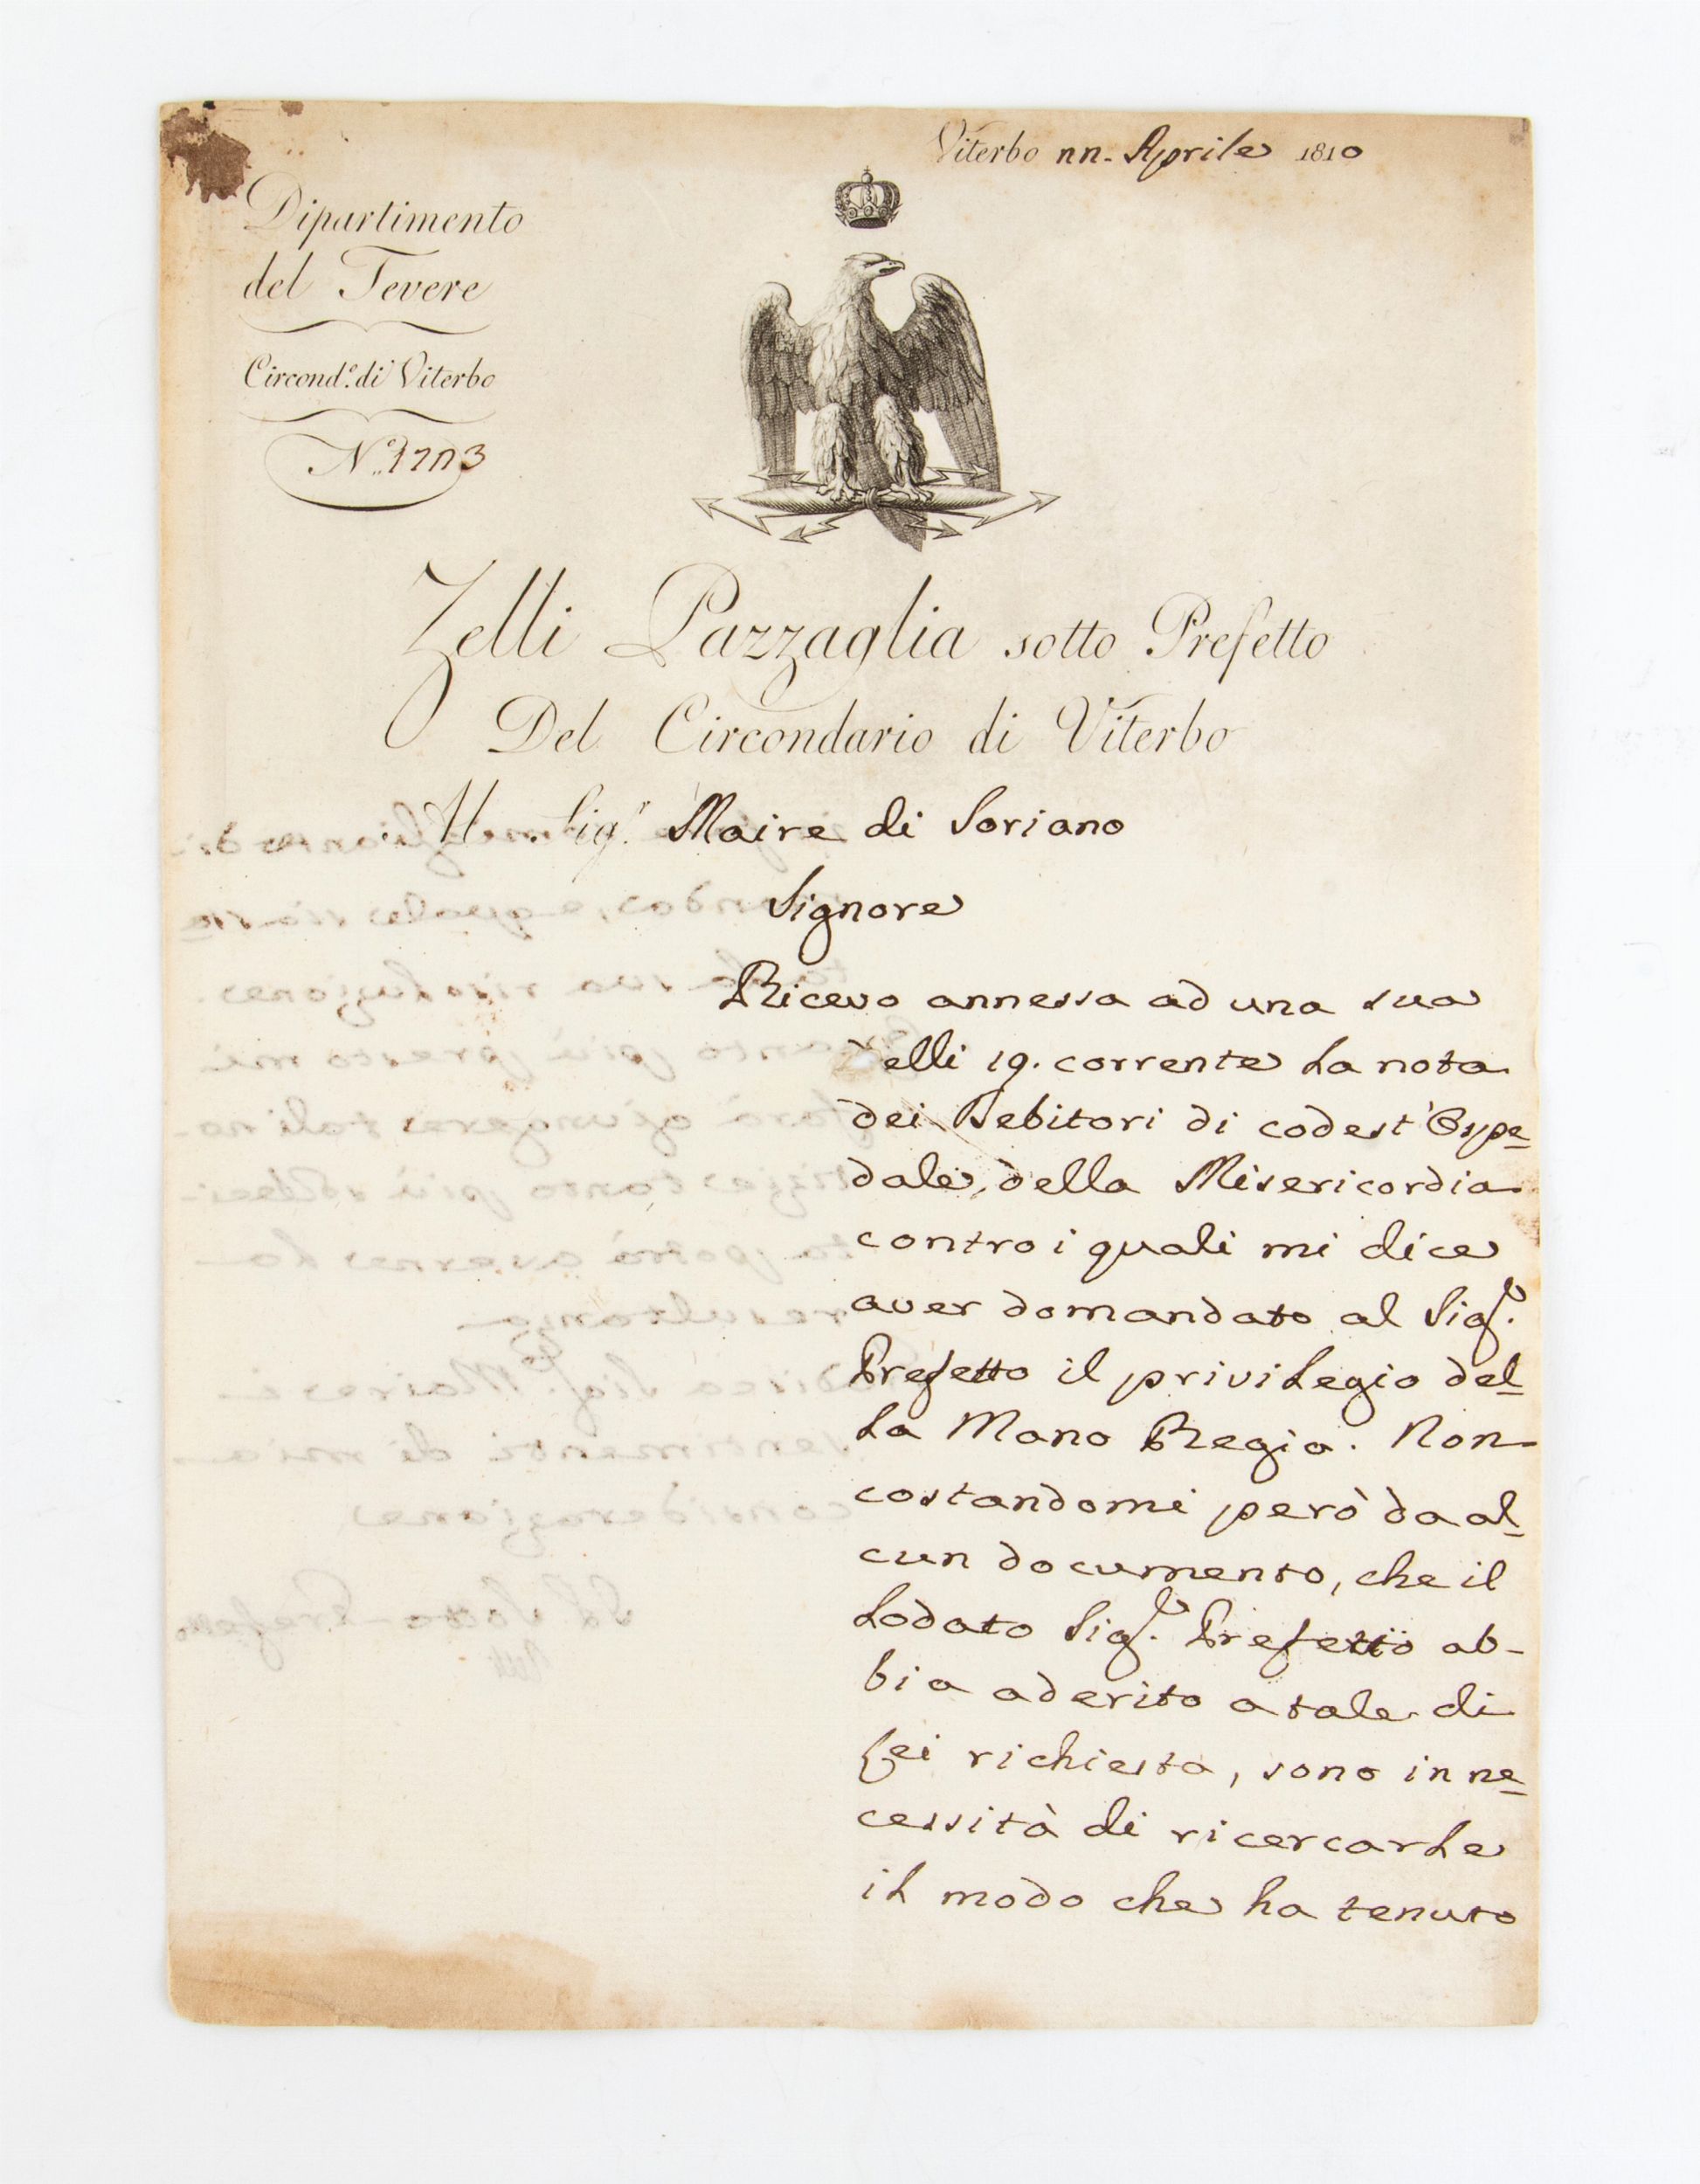 Viterbo nn. Aprile 1810
Dipartimento
del Tevere
Circond.º di Viterbo
N.º 1703
Zelli Pazzaglia sotto Prefetto
Del Circondario di Viterbo
Al Sig.r Maire di Soriano
Signore
Ricevo annessa ad una sua
delli 19. corrente la nota
dei Debitori di codest'Ospe=
dale della Misericordia
contro i quali mi dice
aver domandato al Sig.r
Prefetto il privilegio del=
la Mano Regia. Non
costandomi però da al=
cun documento, che il
lodato Sig.r Prefetto ab-
bia aderito a tale di
Lei richiesta, sono in ne=
cessità di ricercarle
il modo che ha tenuto